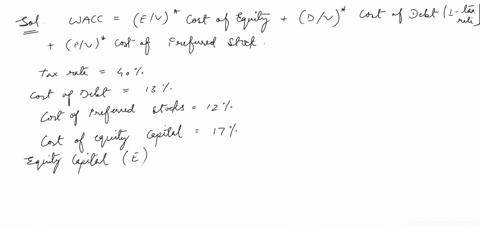 Sol. WACC = (E/V)* Cost of Equity + (D/V)* Cost of Debt (1-tax rate)
+ (P/V)* Cost of Preferred Stock.
Tax rate = 40%.
Cost of Debt = 13%
Cost of Preferred Stocks = 12%
Cost of equity capital = 17%
Equity Capital (E)